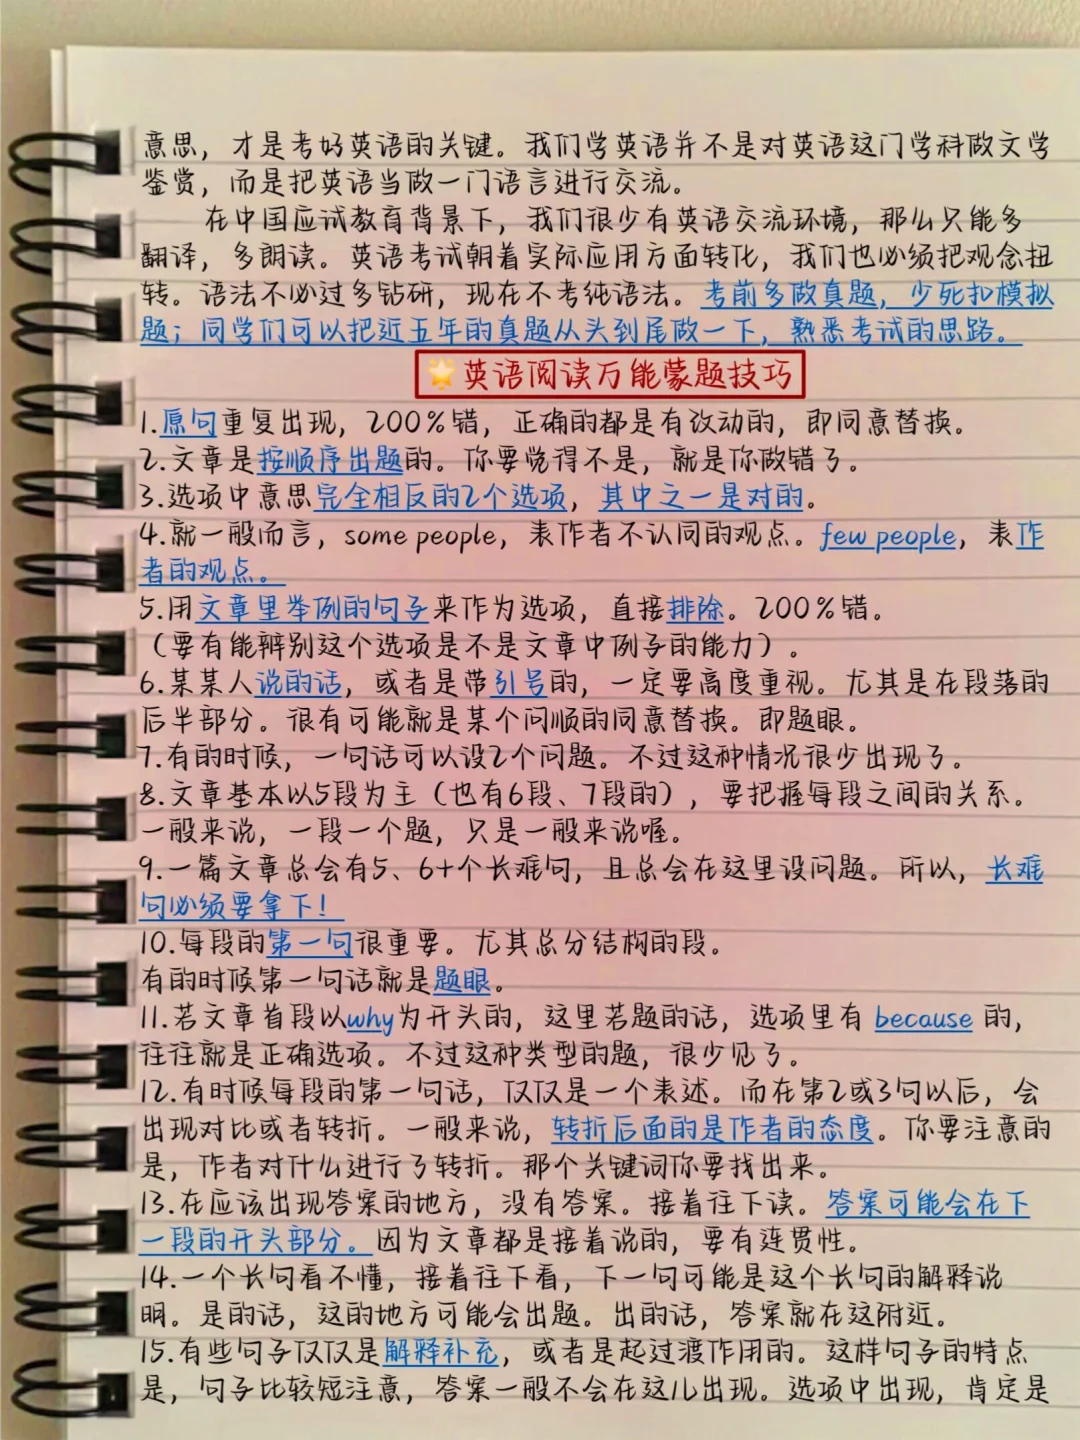 意思，才是考好英语的关键。我们学英语并不是对英语这门学科做文学
鉴赏，而是把英语当做一门语言进行交流。
在中国应试教育背景下，我们很少有英语交流环境，那么只能多
翻译，多朗读。英语考试朝着实际应用方面转化，我们也必须把观念扭
转。语法不必过多钻研，现在不考纯语法。考前多做真题，少死扣模拟
题；同学们可以把近五年的真题从头到尾做一下，熟悉考试的思路。
🌟英语阅读万能蒙题技巧
1.原句重复出现，200%错，正确的都是有改动的，即同意替换。
2.文章是按顺序出题的。你要觉得不是，就是你做错了。
3.选项中意思完全相反的2个选项，其中之一是对的。
4.就一般而言，some people，表作者不认同的观点。few people，表作
者的观点。
5.用文章里举例的句子来作为选项，直接排除。200%错。
（要有能辨别这个选项是不是文章中例子的能力）。
6.某某人说的话，或者是带引号的，一定要高度重视。尤其是在段落的
后半部分。很有可能就是某个问顺的同意替换。即题眼。
7.有的时候，一句话可以设2个问题。不过这种情况很少出现了。
8.文章基本以5段为主（也有6段、7段的），要把握每段之间的关系。
一般来说，一段一个题，只是一般来说喔。
9.一篇文章总会有5、6+个长难句，且总会在这里设问题。所以，长难
句必须要拿下！
10.每段的第一句很重要。尤其总分结构的段。
有的时候第一句话就是题眼。
11.若文章首段以why为开头的，这里若题的话，选项里有 because 的，
往往就是正确选项。不过这种类型的题，很少见了。
12.有时候每段的第一句话，仅仅是一个表述。而在第2或3句以后，会
出现对比或者转折。一般来说，转折后面的是作者的态度。你要注意的
是，作者对什么进行了转折。那个关键词你要找出来。
13.在应该出现答案的地方，没有答案。接着往下读。答案可能会在下
一段的开头部分。因为文章都是接着说的，要有连贯性。
14.一个长句看不懂，接着往下看，下一句可能是这个长句的解释说
明。是的话，这的地方可能会出题。出的话，答案就在这附近。
15.有些句子仅仅是解释补充，或者是起过渡作用的。这样句子的特点
是，句子比较短注意，答案一般不会在这儿出现。选项中出现，肯定是